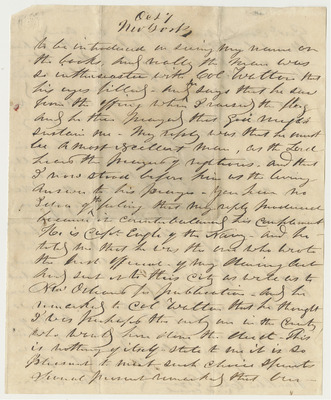 Oct 7
New York
to be introduced on seeing my name on
the books. And really the man was
so enthusiastic with Col Wetter that
his eyes filled. And says that he saw
from the offing when I raised the flag
and he then prayed that God might
sustain me - My reply was that he must
be a most excellent man, as the Lord
heard the prayers of righteous. And that
I now stood before him as the living
answer to his prayers - You have no
idea of the feeling that my reply produced
in counterbalancing his compliment
He is Capt Eagle of the Navy - and he
told me that he was the one who wrote
the first of my
and sent it to this city as well as to
New Orleans for publication. And he
remarked to Col Wetter that he thought
I was perhaps the only one in the County
who would have done the deed. This
is nothing of itself to me it is so
pleasant to meet such choice Spirits
Several present remarked that